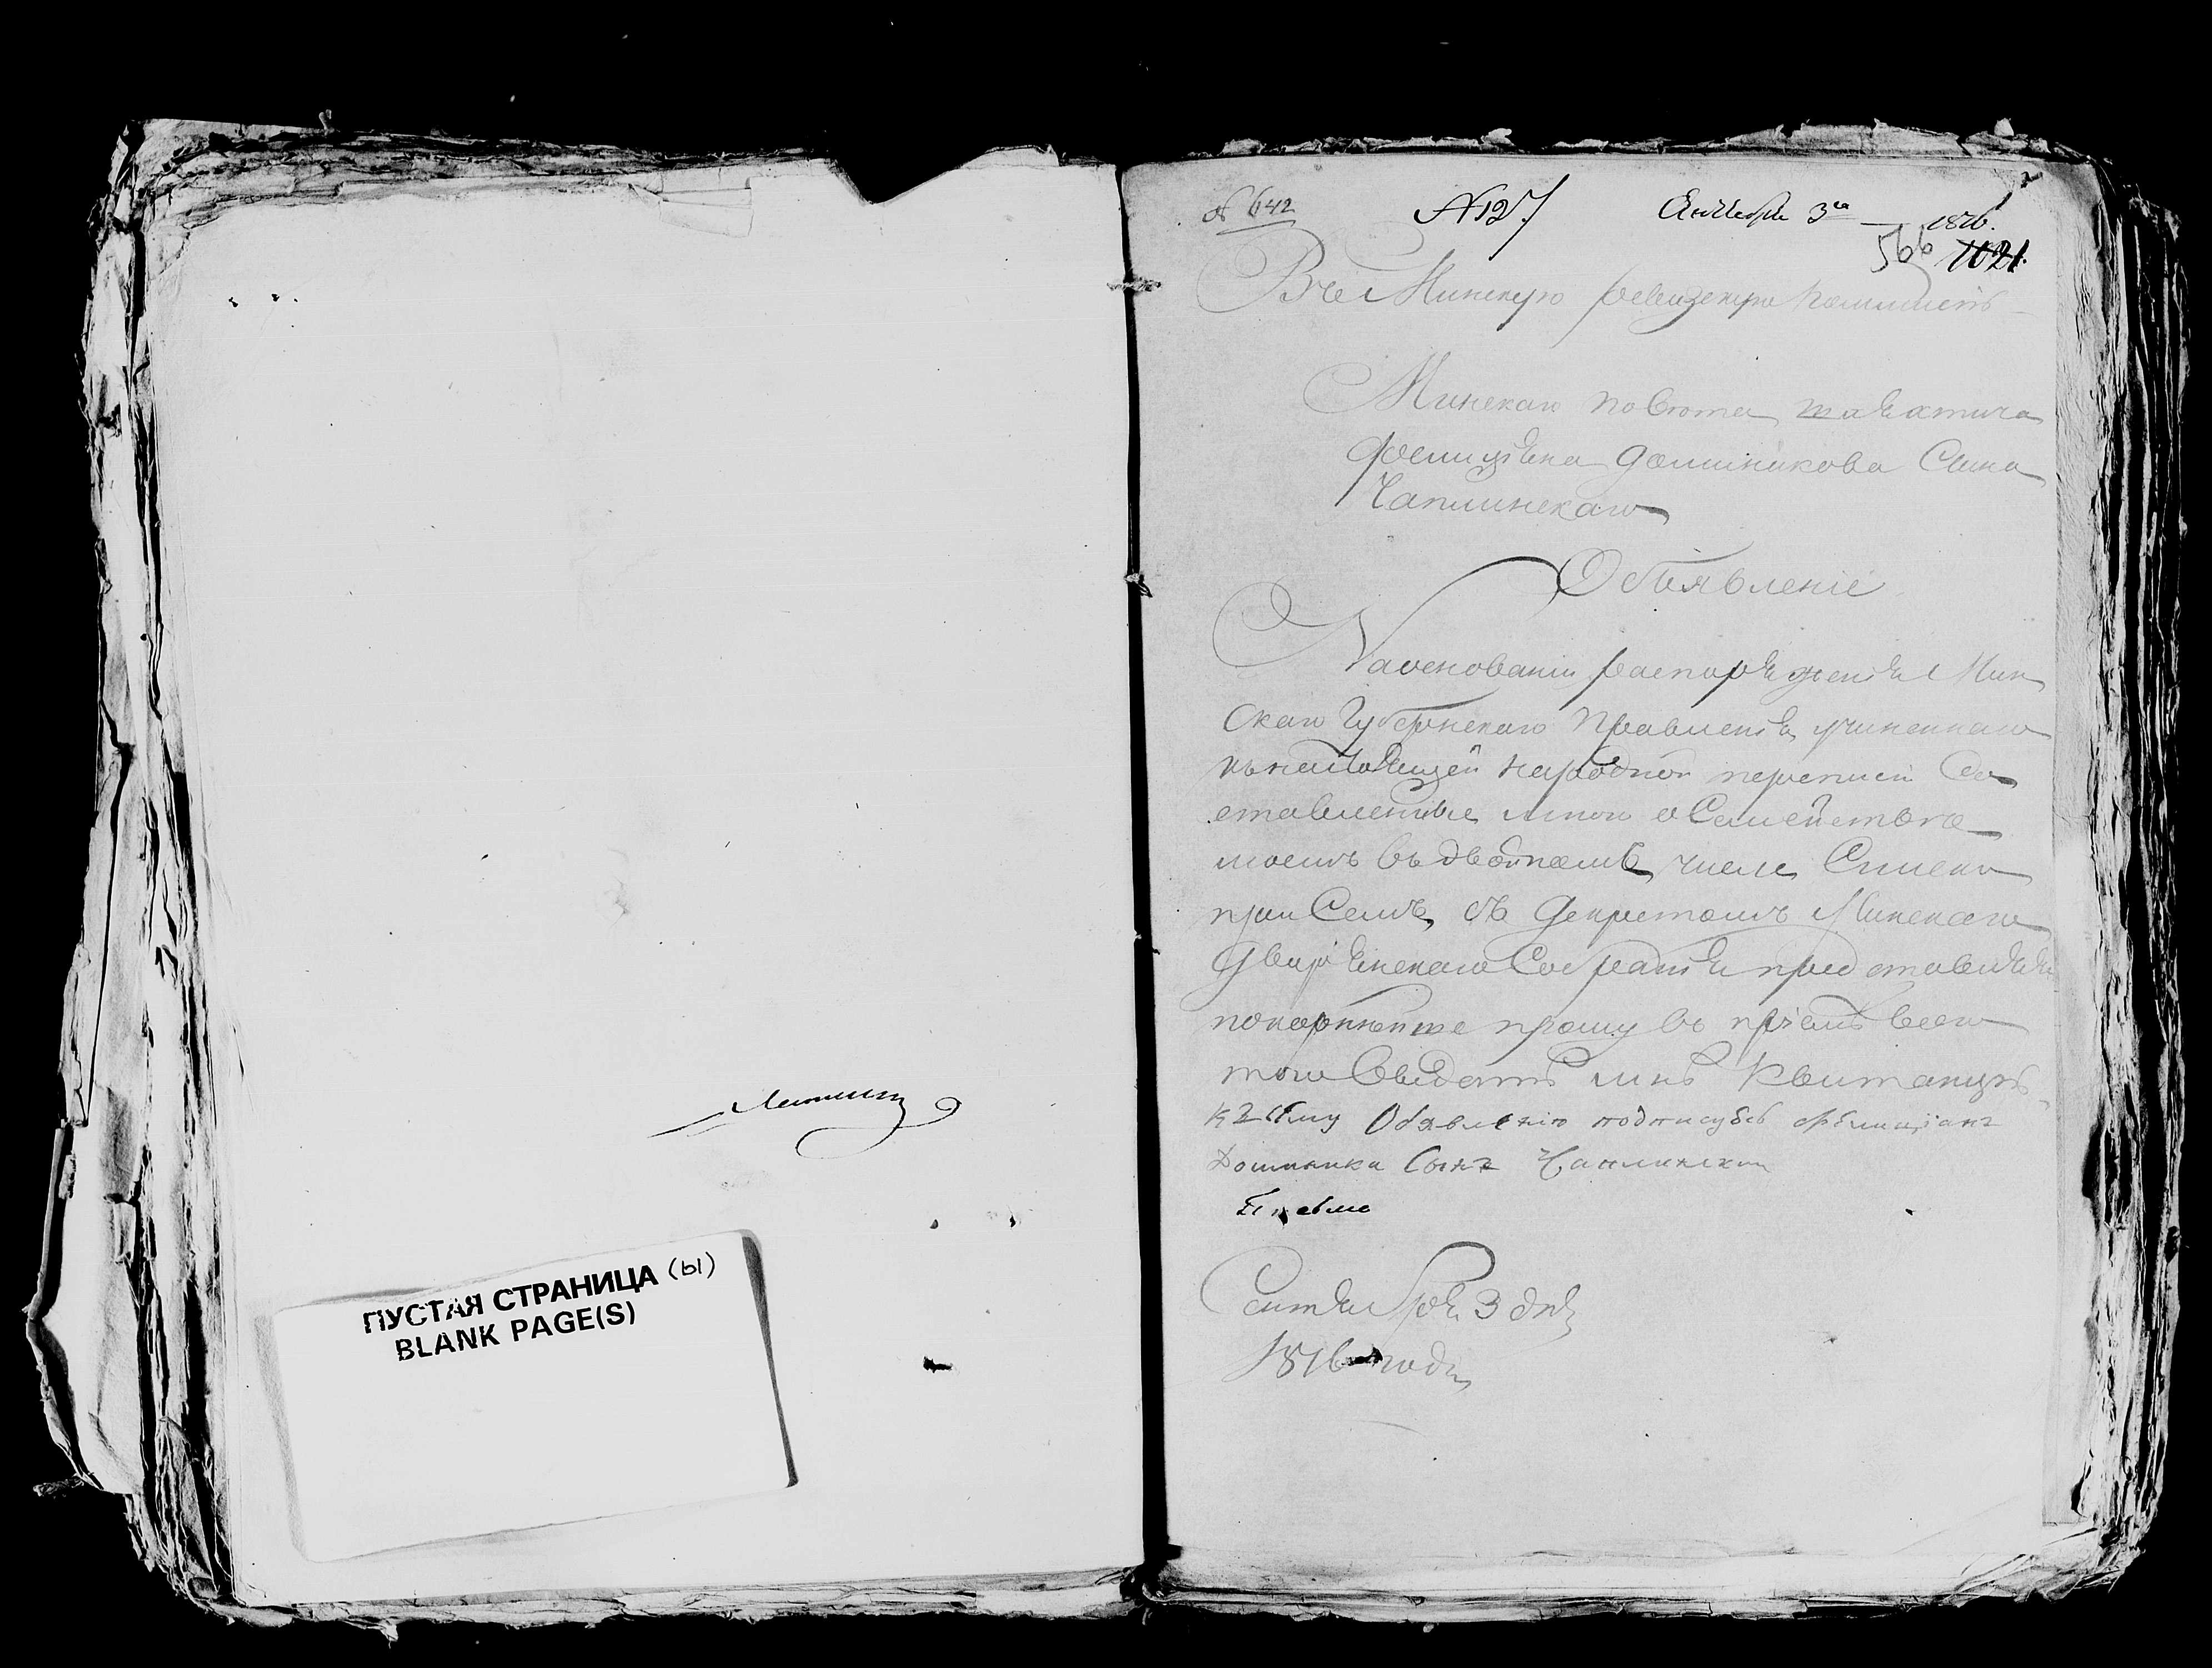 ПУСТАЯ СТРАНИЦА (ы)
BLANK PAGE(S)
№ 642
№ 127
Сентебря 3го 1816.
566 1021.
Въ Минскую ревизскую Коммисію
Минскаго повета шляхтича
Фелицыяна Доминикова Сына
Чаплинскаго
Объявленіе
На основаніи распоряженія Мин
скаго Губернскаго Правленія учиненнаго
къ настоящей народной переписи Со
ставленные мною о Семействе
моемъ въ двойномъ числе Списки
при Семъ, съ Декретомъ Минскаго
Дворянскаго Собранія представляя
покорнейше прошу въ пріеме всего
того выдать мне Квитанцію
къ сему Объявлению подписуюсь Фелициянъ
Доминика Сынъ Чаплински
Сентября 3 дня
1816 года